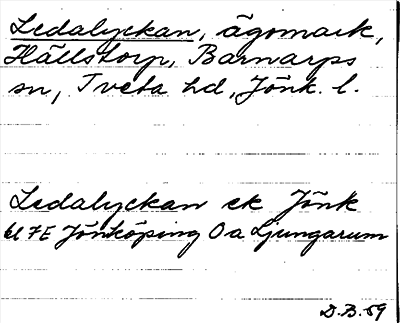 Ledalyckan, ägomark,
Hällstorp, Barnarps
sn, Tveta hd, Jönk. l.
Ledalyckan ek Jönk
bl 7E Jönköping Oa Ljungarum
D.B. 59